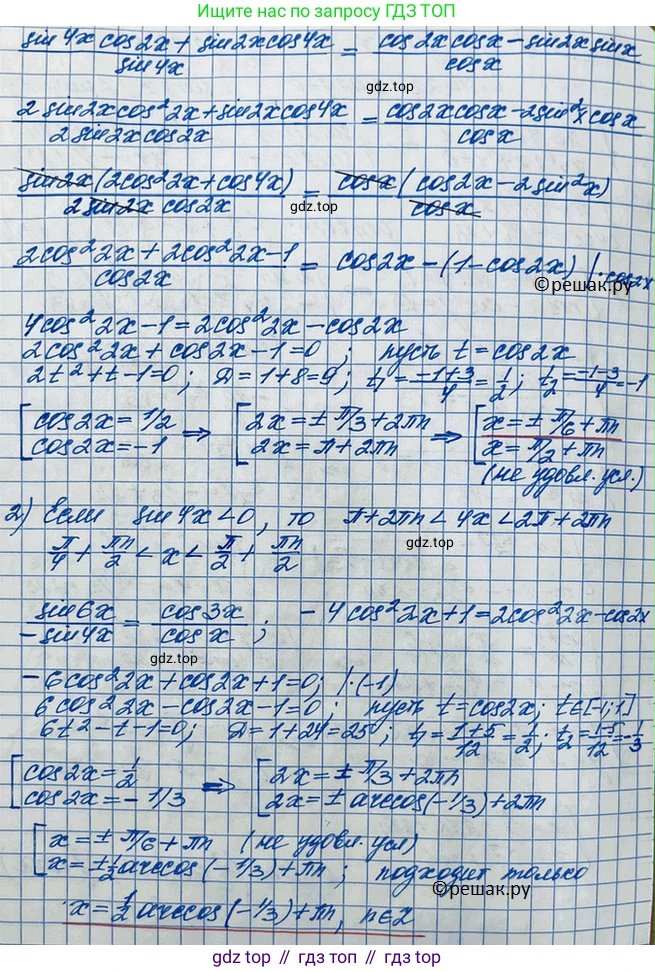 Ищите нас по запросу ГДЗ ТОП
(sin4x cos2x + sin2x cos4x)/sin4x = (cos2x cosx - sin2x sinx)/cosx
gdz.top
(2 sin2x cos²2x + sin2x cos4x)/(2 sin2x cos2x) = (cos2x cosx - 2sin²x cosx)/cosx
(sin2x (2cos²2x + cos4x))/(2 sin2x cos2x) = (cosx (cos2x - 2sin²x))/cosx
gdz.top
(2cos²2x + 2cos²2x - 1)/cos2x = cos2x - (1 - cos2x) | · cos2x
©решак.ру
4cos²2x - 1 = 2cos²2x - cos2x
2cos²2x + cos2x - 1 = 0 ; пусть t = cos2x
2t² + t - 1 = 0 ; Д = 1 + 8 = 9 ; t₁ = (-1+3)/4 = 1/2 ; t₂ = (-1-3)/4 = -1
[ cos2x = 1/2 ⇒ [ 2x = ± π/3 + 2πn ⇒ [ x = ± π/6 + πn
cos2x = -1 2x = π + 2πn x = π/2 + πn
(не удовл. усл.)
2) Если sin4x < 0, то π + 2πn < 4x < 2π + 2πn
π/4 + πn/2 < x < π/2 + πn/2
gdz.top
sin6x/(-sin4x) = cos3x/cosx ; -4cos²2x + 1 = 2cos²2x - cos2x
gdz.top
-6cos²2x + cos2x + 1 = 0 ; | · (-1)
6cos²2x - cos2x - 1 = 0 ; пусть t = cos2x ; t ∈ [-1; 1]
6t² - t - 1 = 0 ; Д = 1 + 24 = 25 ; t₁ = (1+5)/12 = 1/2 ; t₂ = (1-5)/12 = -1/3
[ cos2x = 1/2 ⇒ [ 2x = ± π/3 + 2πn
cos2x = -1/3 2x = ± arccos(-1/3) + 2πn
[ x = ± π/6 + πn (не удовл. усл)
x = ± 1/2 arccos(-1/3) + πn ; подходит только
©решак.ру
x = 1/2 arccos(-1/3) + πn, n∈Z
gdz.top // gdz.top // gdz.top